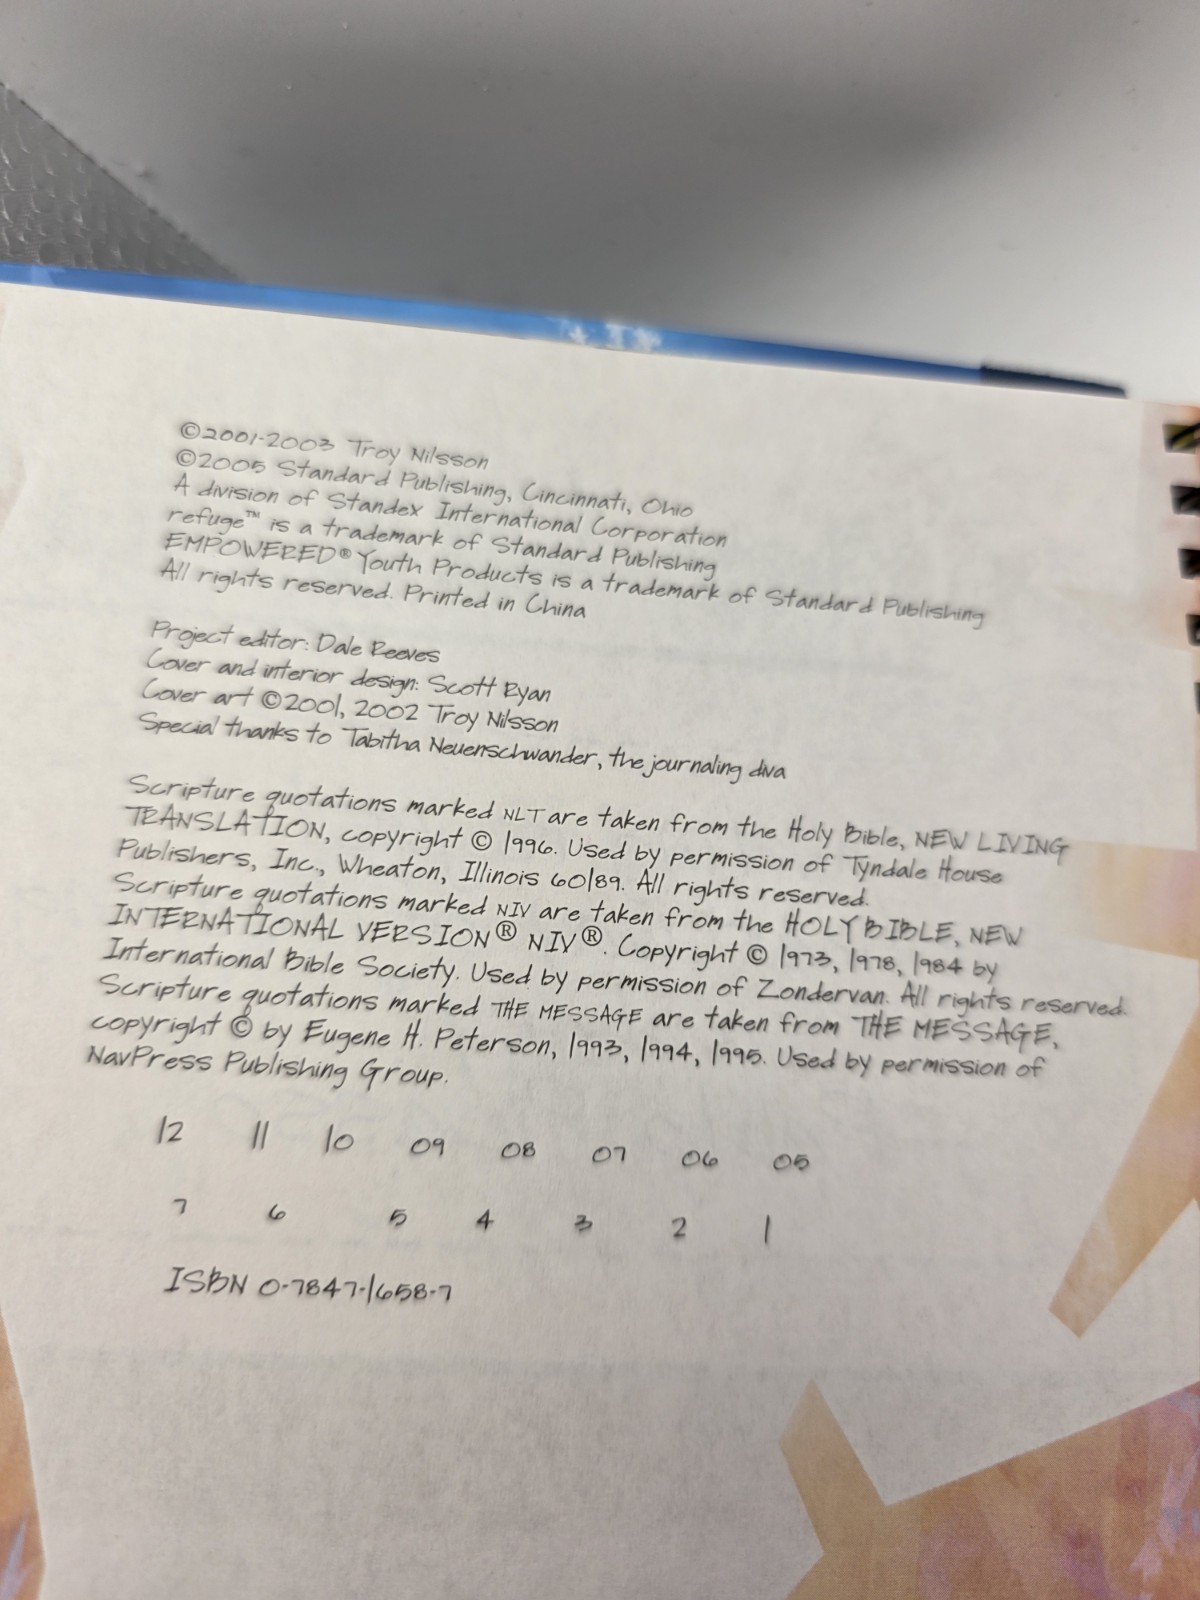 ©2001-2003 Troy Nilsson
©2005 Standard Publishing, Cincinnati, Ohio
A division of Standex International Corporation
refuge™ is a trademark of Standard Publishing
EMPOWERED® Youth Products is a trademark of Standard Publishing
All rights reserved. Printed in China
Project editor: Dale Reeves
Cover and interior design: Scott Ryan
Cover art ©2001, 2002 Troy Nilsson
Special thanks to Tabitha Neuenschwander, the journaling diva
Scripture quotations marked NLT are taken from the Holy Bible, NEW LIVING
TRANSLATION, copyright © 1996. Used by permission of Tyndale House
Publishers, Inc., Wheaton, Illinois 60189. All rights reserved.
Scripture quotations marked NIV are taken from the HOLY BIBLE, NEW
INTERNATIONAL VERSION® NIV®. Copyright © 1973, 1978, 1984 by
International Bible Society. Used by permission of Zondervan. All rights reserved.
Scripture quotations marked THE MESSAGE are taken from THE MESSAGE,
copyright © by Eugene H. Peterson, 1993, 1994, 1995. Used by permission of
NavPress Publishing Group.
12 11 10 09 08 07 06 05
7 6 5 4 3 2 1
ISBN 0-7847-1658-7